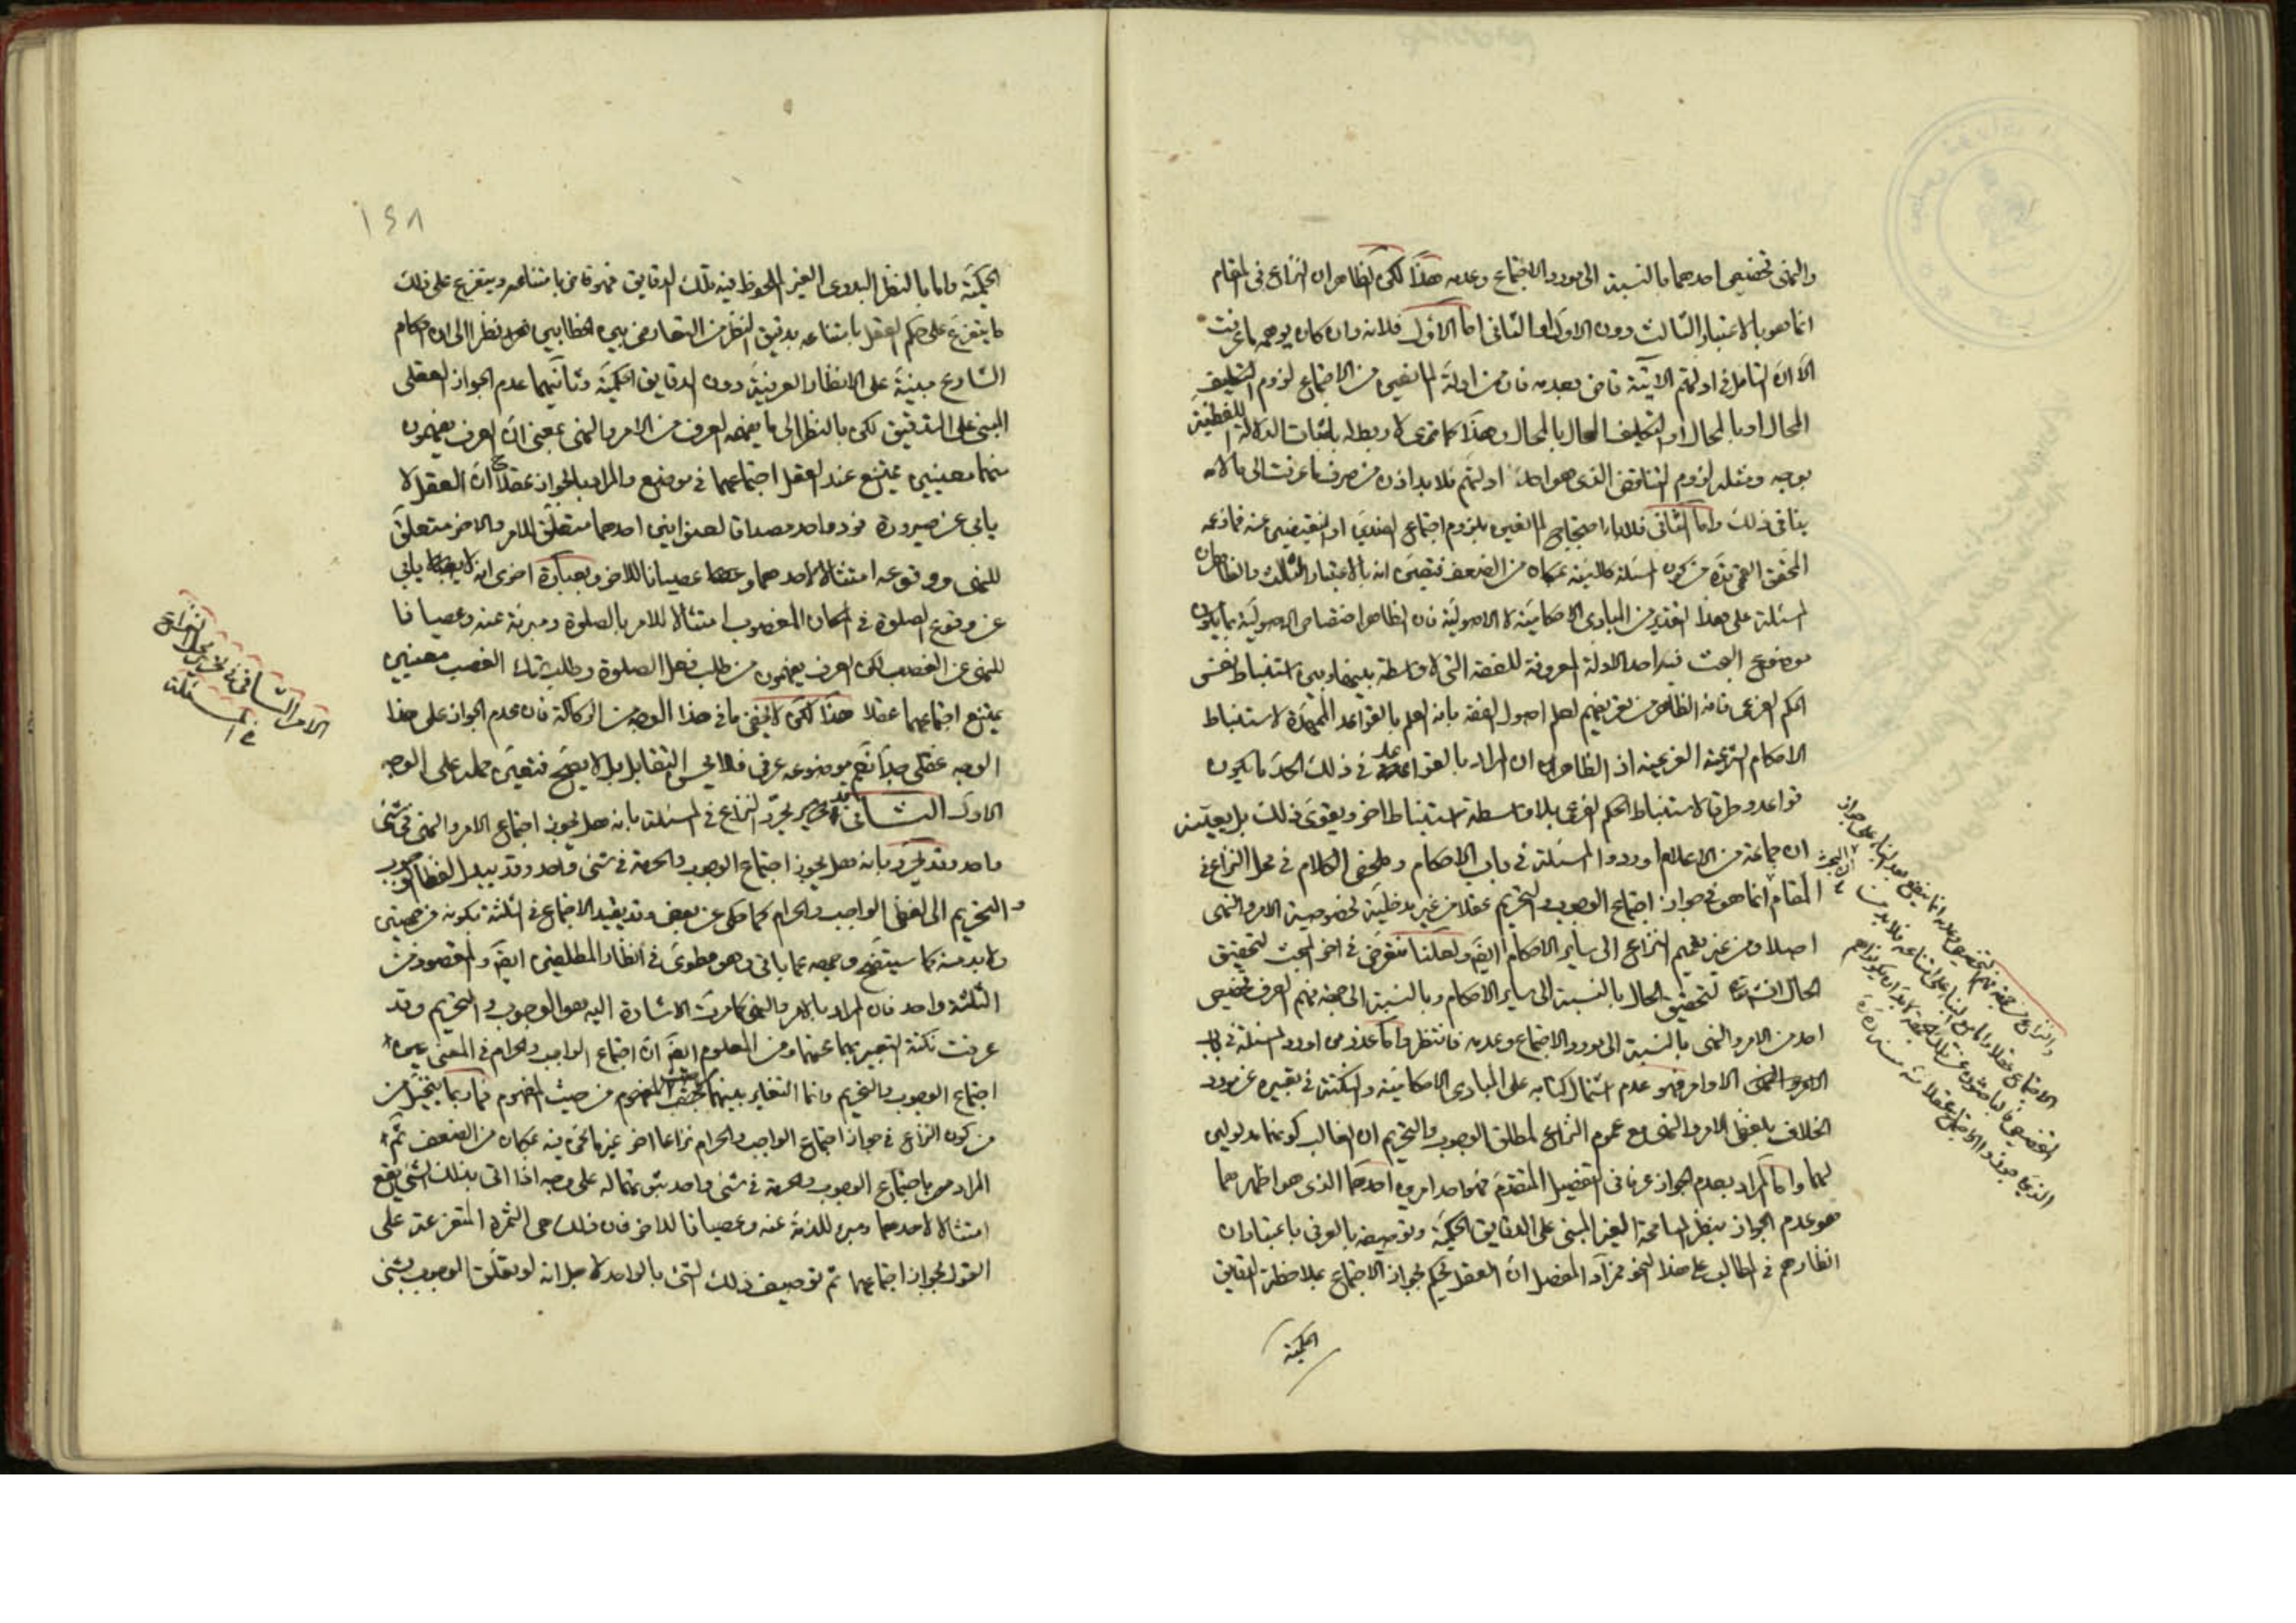 والنهى تخصيص احدهما بالنسبة الى مورد الاجتماع وعدمه هذا لكن الظاهر ان النزاع فى المقام
انما هو بالاعتبار الثالث دون الاول او الثانى اما الاول فلانه وان كان يوهمه ما عرفت
الا ان التامل فى ادلتهم الآتية قاض بعدمه فان من ادلة المانعين من الاجتماع لزوم التكليف
المحال او بالمحال او التكليف المحال بالمحال وهذا كما ترى لا ربط له باثبات الدلالة اللفظية
بوجه ومثله لزوم التناقض الذى هو احد ادلتهم فلا بد اذن من صرف ما عرفت الى ما لا
ينافى ذلك واما الثانى فلان احتجاج المانعين بلزوم اجتماع الضدين او النقيضين عنه فما زعمه
المحقق القمى من كون المسئلة كلامية بمكان من الضعف فتعين انه بالاعتبار الثالث والظاهر ان
المسئلة على هذا التقدير من المبادى الاحكامية لا الاصولية فان الظاهر اختصاص الاصولية بما يكون
موضوع البحث فيه احد الادلة المعروفة للفقه التى لا واسطة بينها وبين استنباط نفس
الحكم الفرعى فانه الظاهر من تعريفهم لعلم اصول الفقه بانه العلم بالقواعد الممهدة لاستنباط
الاحكام الشرعية الفرعية اذ الظاهر ان المراد بالقواعد فى ذلك الحد ما يكون
قواعد وطرقا لاستنباط الحكم الفرعى بلا واسطة استنباط اخر ويقوى ذلك بل يعينه
ان جماعة من الاعلام اوردوا المسئلة فى باب الاحكام وملخص الكلام فى محل النزاع فى
المقام ان البحث انما هو فى جواز اجتماع الوجوب والتحريم عقلا من غير مدخلية لخصوصية الامر والنهى
اصلا ومن غير تعميم النزاع الى ساير الاحكام ايضا ولعلنا نتعرض فى اخر المبحث لتحقيق
الحال لتحقيق الحال بالنسبة الى ساير الاحكام وبالنسبة الى جهة فهم العرف تخصيص
احد من الامر والنهى بالنسبة الى مورد الاجتماع وعدمه فانتظر واما عذر من اورد المسئلة فى باب
الاوامر فهو عدم اشتمال كتابه على المبادى الاحكامية والنكتة فى تعبيره عن مورد
الخلاف بلفظ الامر والنهى مع عموم النزاع لمطلق الوجوب والتحريم ان الغالب كونهما مدلولين
لهما واما المراد بعدم الجواز عرفا فى التفصيل المتقدم فهو احد امرين احدهما الذى هو اظهرهما
هو عدم الجواز بنظر المسامحة الغير المبنى على الدقايق الحكمية وتوصيفه بالعرفى باعتبار ان
انظارهم فى المطالب على هذا النحو فمراد المفصل ان العقل يحكم بجواز الاجتماع بملاحظة الدقايق
الحكمية
١٤٨
الحكمية واما بالنظر البدوى الغير الملحوظ فيه تلك الدقايق فهو قاض بامتناعه ويتفرع على ذلك
ما يتفرع على حكم العقل بامتناعه بدقيق النظر من التعارض بين الخطابين نظرا الى ان احكام
الشارع مبنية على الانظار العرفية دون الدقايق الحكمية وثانيهما عدم الجواز العقلى
المبنى على التدقيق لكن بالنظر الى ما يفهمه العرف من الامر والنهى بمعنى ان العرف يفهمون
منهما معنيين يمتنع عند العقل اجتماعهما فى موضع والمراد بالجواز عقلا ح ان العقل لا
يابى عن صيرورة فرد واحد مصداقا لعنوانين احدهما متعلق للامر والاخر متعلق
للنهى ووقوعه امتثالا لاحدهما وعصيانا للاخر وبعبارة اخرى انه لا يابى
عن وقوع الصلوة فى المكان المغصوب امتثالا للامر بالصلوة ومبرئة عنه وعصيانا
للنهى عن الغصب لكن العرف يفهمون من طلب فعل الصلوة وطلب ترك الغصب معنيين
يمتنع اجتماعهما عقلا هذا لكن لا يخفى ما فى هذا الوجه من الركاكة فان عدم الجواز على هذا
الوجه عقلى جدا نعم موضوعه عرفى فلا يحسن التقابل بل لا يصح فتعين حمله على الوجه
الاول الثانى قد يحرر النزاع فى المسئلة بانه هل يجوز اجتماع الامر والنهى فى شئ
واحد وقد يحرر بانه هل يجوز اجتماع الوجوب والحرمة فى شئ واحد وقد يبدل لفظا الوجوب
و التحريم الى لفظى الواجب والحرام كما حكى عن بعض وقد يقيد الاجتماع فى الثلثة بكونه من جهتين
ولا بد منه كما سيتضح وجهه عما ياتى وهو مطوى فى انظار المطلقين ايضا والمقصود من
الثلثة واحد فان المراد بالامر والنهى كما مرت الاشارة اليه هو الوجوب والتحريم وقد
عرفت نكتة التعبير بهما عنهما ومن المعلوم ايضا ان اجتماع الواجب والحرام فى المعنى عين
اجتماع الوجوب والتحريم وانما التغاير بينهما المفهوم من حيث المفهوم فما ربما يتخيل من
من كون النزاع فى جواز اجتماع الواجب والحرام نزاعا اخر غير ما نحن فيه بمكان من الضعف ثم
المراد من اجتماع الوجوب والحرمة فى شئ واحد اشتماله على وجه اذا اتى بذلك الشئ يقع
امتثالا لاحدهما ومبرء للذمة عنه وعصيانا للاخر فان ذلك هى الثمرة المتفرعة على
القول بجواز اجتماعهما ثم توصيف ذلك الشئ بالواحد لاجل انه لو تعلق الوجوب بشئ
الامر الثانى فى تحرير محل النزاع
فى المسئلة